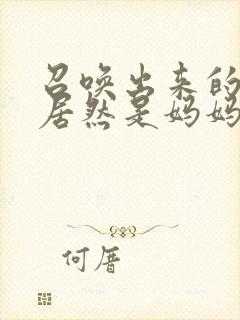 召唤出来的
居然是妈妈
何厝